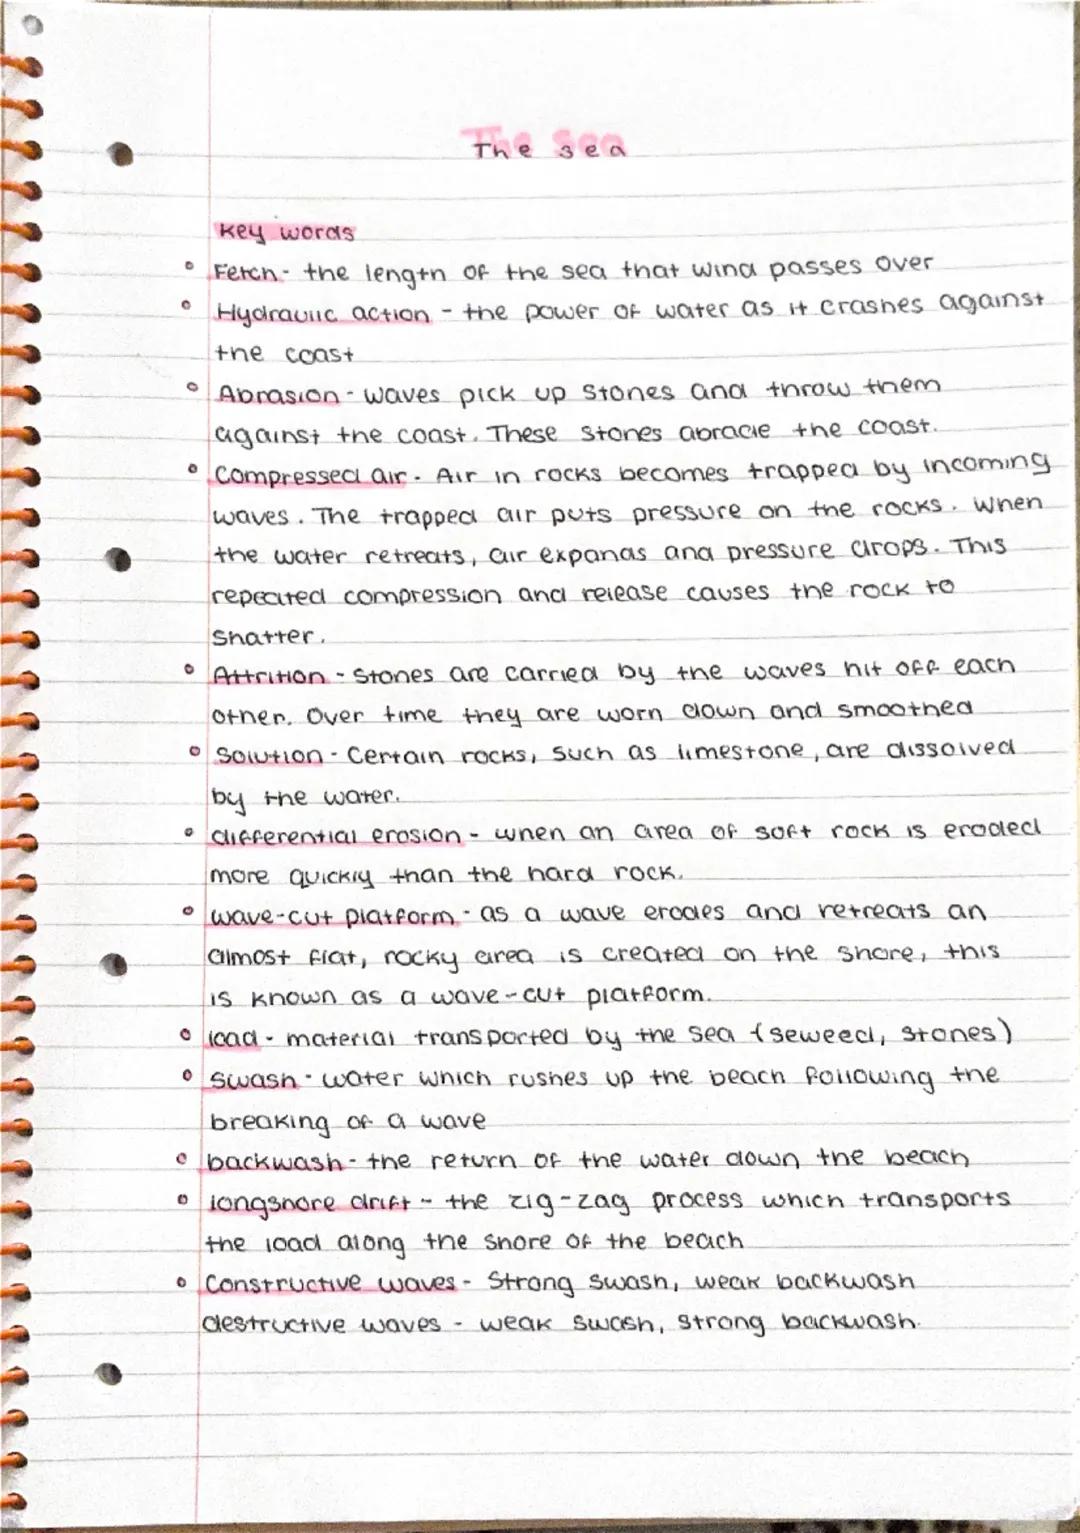 The Sea
The sea
key words
• Fetch - the length of the sea that wind passes over
• Hydraulic action - the power of water as it crashes against
the coast
• Abrasion - waves pick up stones and throw them
against the coast. These stones abrade the coast.
• Compressed air - Air in rocks becomes trapped by incoming
waves. The trapped air puts pressure on the rocks. When
the water retreats, air expands and pressure drops. This
repeated compression and release causes the rock to
shatter.
• Attrition - stones are carried by the waves hit off each
other. Over time they are worn down and smoothed
• Solution - Certain rocks, such as limestone, are dissolved
by the water.
• differential erosion - when an area of soft rock is eroded
more quickly than the hard rock.
• wave-cut platform - as a wave erodes and retreats an
almost flat, rocky area is created on the shore, this
is known as a wave-cut platform.
• load - material transported by the sea (seweed, stones)
• swash - water which rushes up the beach following the
breaking of a wave
• backwash - the return of the water down the beach
• longshore drift - the zig-zag process which transports
the load along the shore of the beach
• Constructive waves - Strong swash, weak backwash
destructive waves - weak swash, strong backwash.